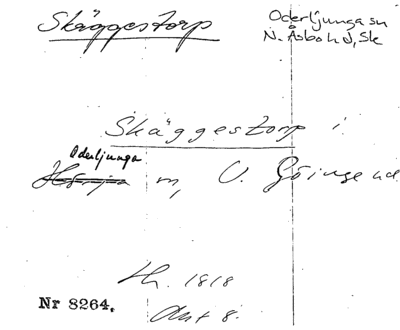 Skäggestorp
Oderljunga sn
N. Åsbo hd, Sk
Skäggestorp i
Oderljunga
sn, V. Göinge hd
Lh. 1818
Akt 8.
Nr 8264.